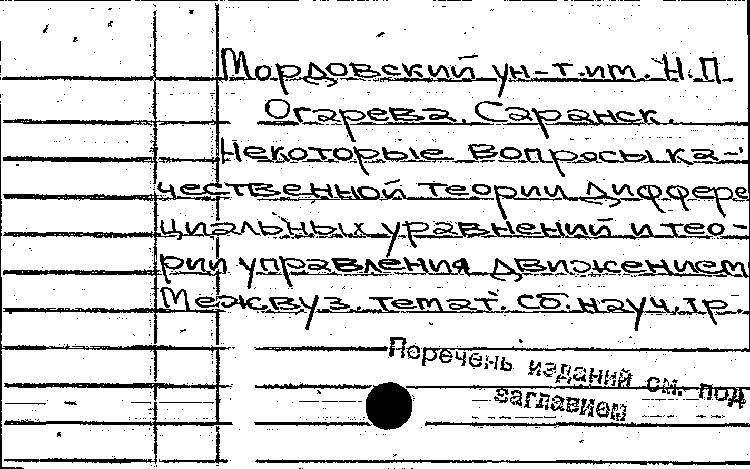 Мордовский ун-т.им. Н.П.
Огарева. Саранск.
Некоторые вопросы ка-
чественной теории диффере
циальных уравнений и тео-
рии управления движением
Межвуз. темат. сб. науч. тр.
Перечень изданий см. под
заглавием